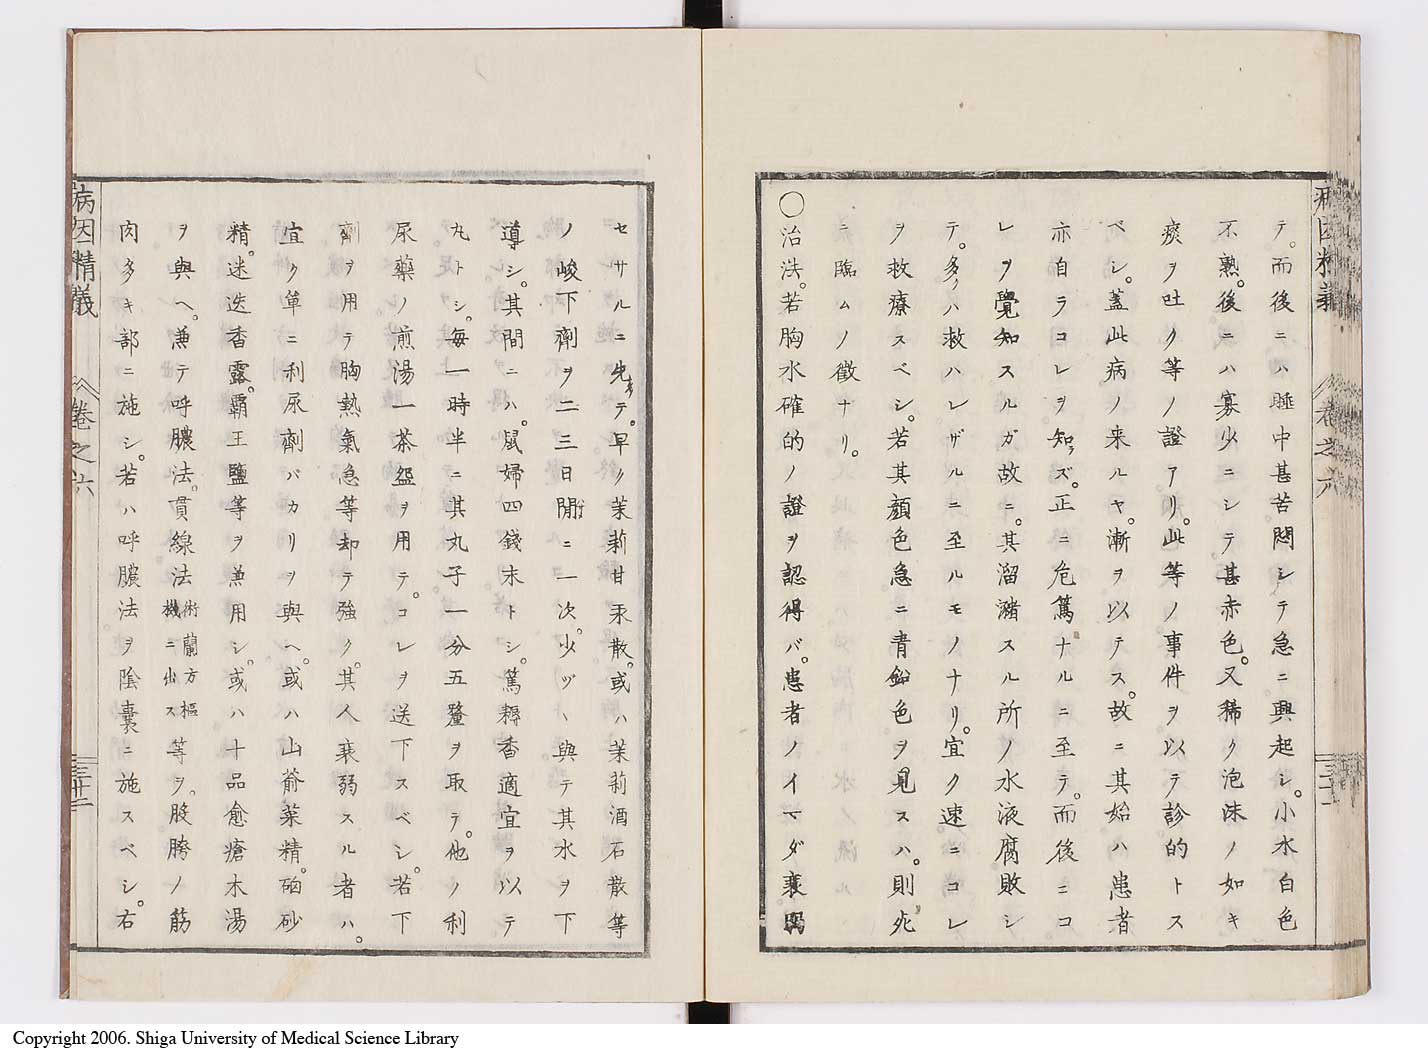 テ。而後ニハ睡中甚苦悶シテ急ニ興起シ。小水白色
不熟。後ニハ寡少ニシテ甚赤色。又稀ク泡沫ノ如キ
痰ヲ吐ク等ノ證アリ。此等ノ事件ヲ以テ診的トス
ベシ。蓋此病ノ来ルヤ。漸ヲ以テス。故ニ其始ハ患者
亦自ラコレヲ知ラズ。正ニ危篤ナルニ至テ。而後ニコ
レヲ覺知スルガ故ニ。其溜瀦スル所ノ水液腐敗シ
テ。多ハ救ハレザルニ至ルモノナリ。宜ク速ニコレ
ヲ救療スベシ。若其顔色急ニ青鉛色ヲ見スハ。則死
ニ臨ムノ徴ナリ。
○治法。若胸水確的ノ證ヲ認得バ。患者ノイマダ衰弱
病因精義
卷之六
セサルニ先テ。早ク茉莉甘汞散。或ハ茉莉酒石散等
ノ峻下劑ヲ二三日間ニ一次。少ヅヽ與テ其水ヲ下
導シ。其間ニハ。鼠婦四錢末トシ。篤耨香適宜ヲ以テ
丸トシ。毎一時半ニ其丸子一分五釐ヲ取テ。他ノ利
尿藥ノ煎湯一茶盌ヲ用テ。コレヲ送下スベシ。若下
劑ヲ用テ胸熱氣急等却テ強ク。其人衰弱スル者ハ。
宜ク單ニ利尿劑バカリヲ與ヘ。或ハ山葥菜精。硇砂
精。迷迭香露。覇王鹽等ヲ兼用シ。或ハ十品愈瘡木湯
ヲ與ヘ。兼テ呼膿法。貫線法術蘭方樞機ニ出ス等ヲ。股胯ノ筋
肉多キ部ニ施シ。若ハ呼膿法ヲ陰囊ニ施スベシ。右
病因精義
卷之六
三十二
Copyright 2006. Shiga University of Medical Science Library